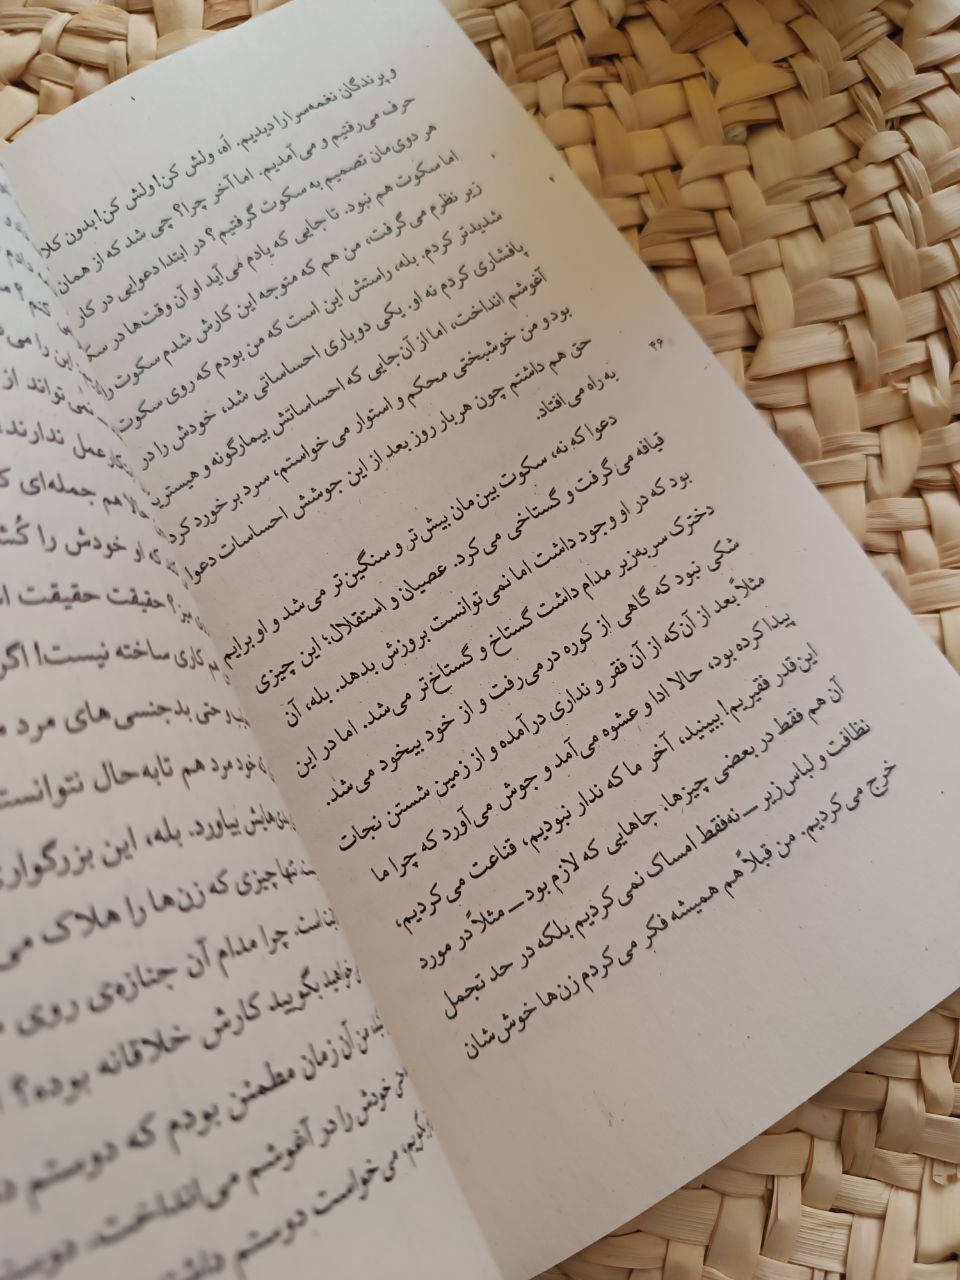 و پرندگان نغمه‌سرا را دیدیم. آه، ولش کن! ولش کن! بدون کلا
حرف می‌رفتیم و می‌آمدیم. اما آخر چرا؟ چی شد که از همان
هر دوی‌مان تصمیم به سکوت گرفتیم؟ در ابتدا دعوایی در کار
اما سکوت هم نبود. تا جایی که یادم می‌آید او آن وقت‌ها در سک
زیر نظرم می‌گرفت، من هم که متوجه این کارش شدم سکوت را
شدیدتر کردم. بله، راستش این است که من بودم که روی سکوت
پافشاری کردم نه او. یکی دوباری احساساتی شد، خودش را در
آغوشم انداخت، اما از آن‌جایی که احساساتش بیمارگونه و هیستریک
بود و من خوشبختی محکم و استوار می‌خواستم، سرد برخورد کرد
حق هم داشتم چون هر بار روز بعد از این جوشش احساسات دعوا
به راه می‌افتاد.
۴۶
دعوا که نه، سکوت بین‌مان بیش‌تر و سنگین‌تر می‌شد و او برایم
قیافه می‌گرفت و گستاخی می‌کرد. عصیان و استقلال؛ این چیزی
بود که در او وجود داشت اما نمی‌توانست بروزش بدهد. بله، آن
دخترک سربه‌زیر مدام داشت گستاخ و گستاخ‌تر می‌شد. اما در این
شکی نبود که گاهی از کوره درمی‌رفت و از خود بیخود می‌شد.
مثلاً بعد از آن‌که از آن فقر و نداری درآمده و از زمین شستن نجات
پیدا کرده بود، حالا ادا و عشوه می‌آمد و جوش می‌آورد که چرا ما
این‌قدر فقیریم! ببینید، آخر ما که ندار نبودیم، قناعت می‌کردیم،
آن هم فقط در بعضی چیزها. جاهایی که لازم بود ــ مثلاً در مورد
نظافت و لباس‌زیر ــ نه‌فقط امساک نمی‌کردیم بلکه در حد تجمل
خرج می‌کردیم. من قبلاً هم همیشه فکر می‌کردم زن‌ها خوش‌شان
این را می
نمی‌تواند از
عمل ندارند
هم جمله‌ای ک
که او خودش را کُش
حقیقت حقیقت ا
کاری ساخته نیست! اگر
حتی بدجنسی‌های مرد
خود مرد هم تا به‌حال نتوانست
بیاورد. بله، این بزرگوار
تنها چیزی که زن‌ها را هلاک می
است. چرا مدام آن جنازه‌ی روی
بگویید کارش خلاقانه بوده؟
من آن زمان مطمئن بودم که دوستم د
خودش را در آغوشم می‌انداخت. دوست
می‌خواست دوستم داشته